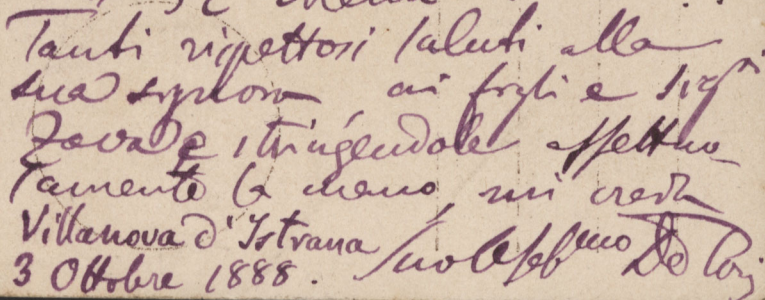 Tanti rispettosi saluti alla
sua signora, ai figli e Sigri
Zava e stringendole affettuo-
samente la mano, mi creda
Villanova d'Istrana
3 Ottobre 1888. Suo De